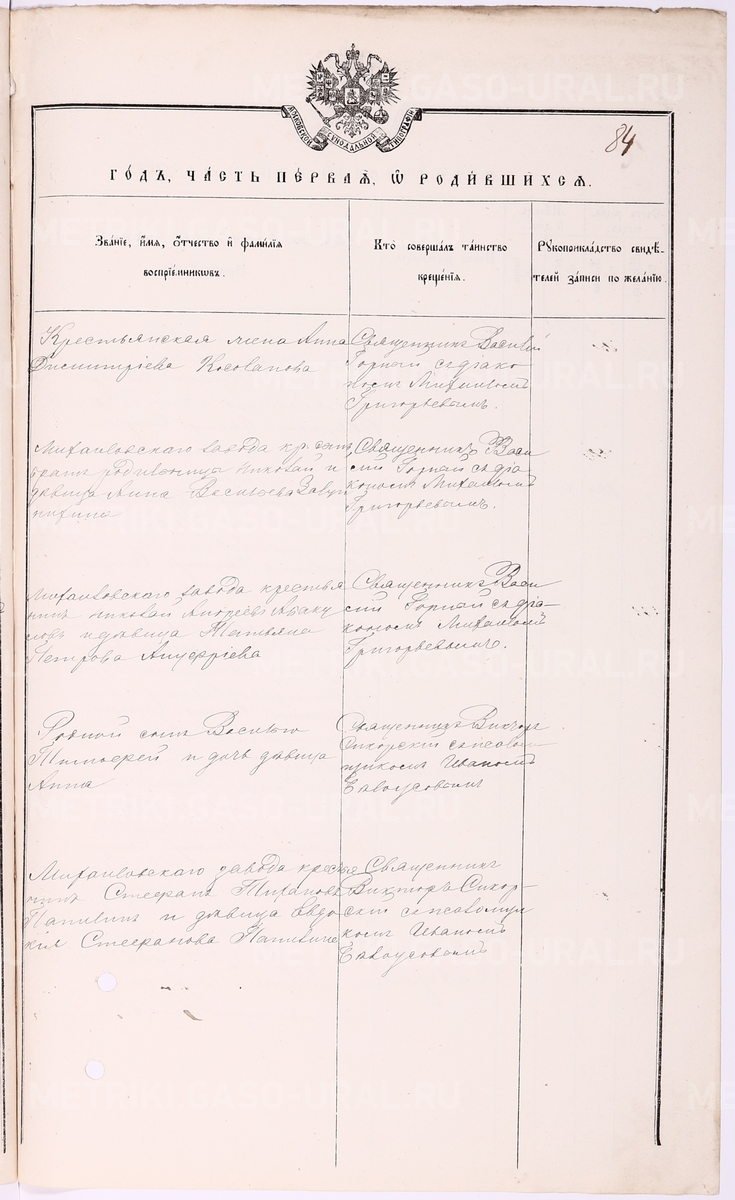 84
МОСКОВСКОЙ СѴНОДАЛЬНОЙ ТИПОГРАФІИ
ГО́ДЪ, ЧА́СТЬ ПЕ́РВАѦ, Ѡ҆ РОДИ́ВШИХСѦ.
Зва́нїе, и҆́мѧ, ѻ҆́тчество и҆ фами́лїѧ
воспрїе́мникѡвъ.
Кто̀ соверша́лъ та́инство
креще́нїѧ.
Рꙋкоприкла́дство свидѣ́-
телей за́писи по жела́нїю.
Крестьянская жена Анна
Димитріева
Священникъ Василій
Горный съ діако
номъ Михаиломъ
Григорьевымъ.
Михайловскаго завода кр. сынъ
братъ родильницы Николай и
дѣвица Анна Васильева
Священникъ Васи
лій Горный съ діа
кономъ Михаиломъ
Григорьевымъ.
Михайловскаго завода крестья
нинъ Николай Андреевъ Абаку
ловъ и дѣвица Татьяна
Петрова Ануфріева
Священникъ Васи
лій Горный съ діа-
кономъ Михаиломъ
Григорьевымъ.
Родной сынъ Василью
Тимофей и дочь дѣвица
Анна
Священникъ Викторъ
Сикорскій съ псалом-
щикомъ Иваномъ
Михайловскаго завода крестья
нинъ Стефанъ Тихановъ
и дѣвица Евдо
кія Стефанова
Священникъ
Викторъ Сикор-
скій съ псаломщи
комъ Иваномъ
METRIKI.GASO-URAL.RU